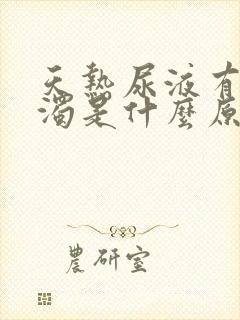 天熱尿液有
濁是什麼原
農研室